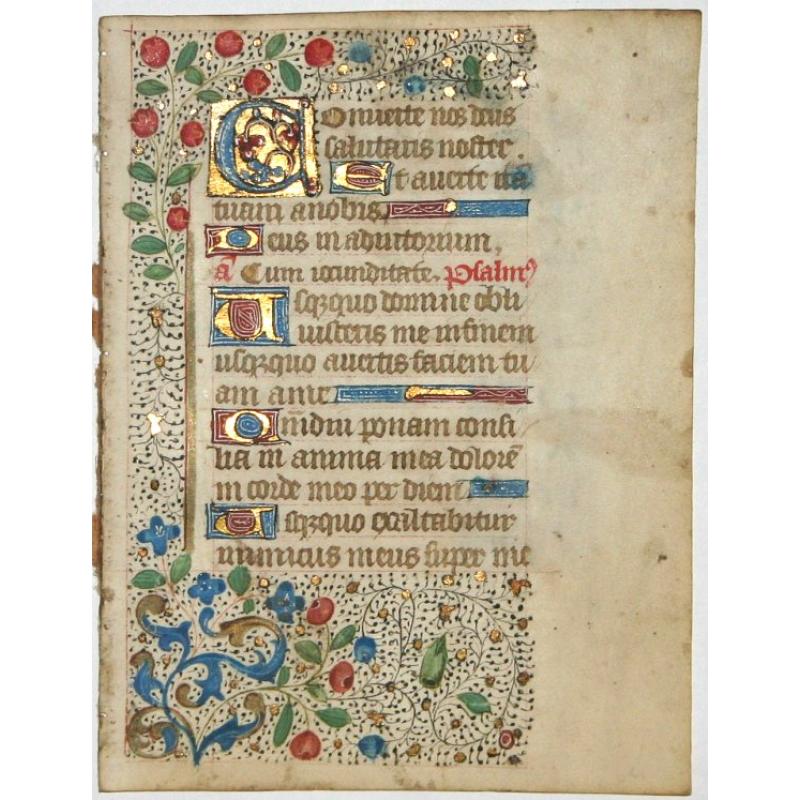 Conuerte nos deus
salutaris noster.
Et auerte ira
tuam anobis
Deus in adiutorium,
a Cum iocunditate. Psalm9
Usqzquo domine obli
uisceris me infinem
usqzquo auertis faciem tu
am a me
Quādiu ponam consi
lia in anima mea dolorē
in corde meo per diem
Usqzquo exaltabitur
inimicus meus super me